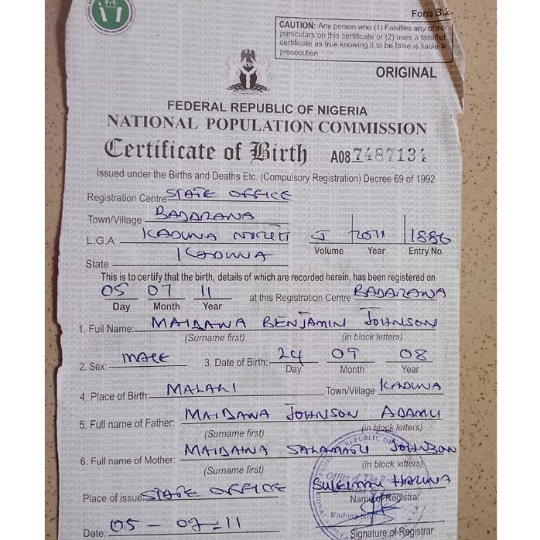 Form B.2
CAUTION: Any person who (1) Falsifies any of the
particulars on this certificate or (2) uses a falsified
certificate as true knowing it to be false is liable to
prosecution
ORIGINAL
FEDERAL REPUBLIC OF NIGERIA
NATIONAL POPULATION COMMISSION
Certificate of Birth A08 7487131
Issued under the Births and Deaths Etc. (Compulsory Registration) Decree 69 of 1992
Registration Centre STATE OFFICE
Town/Village BADARAWA
L.G.A KADUNA NORTH I 2011 1886
Volume Year Entry No.
State KADUNA
This is to certify that the birth, details of which are recorded herein, has been registered on
05 07 11 at this Registration Centre BADARAWA
Day Month Year
1. Full Name: MAIDAWA BENJAMIN JOHNSON
(Surname first) (in block letters)
2. Sex: MALE 3. Date of Birth: 24 09 08
Day Month Year
4. Place of Birth: MALALI Town/Village KADUNA
5. Full name of Father: MAIDAWA JOHNSON ADAMU
(Surname first) (in block letters)
6. Full name of Mother: MAIDAWA JOHNSON
(Surname first) (in block letters)
Place of issue: STATE OFFICE SULEIMAN HARUNA
Name of Registrar
Date: 05 - 07 - 11
Signature of Registrar